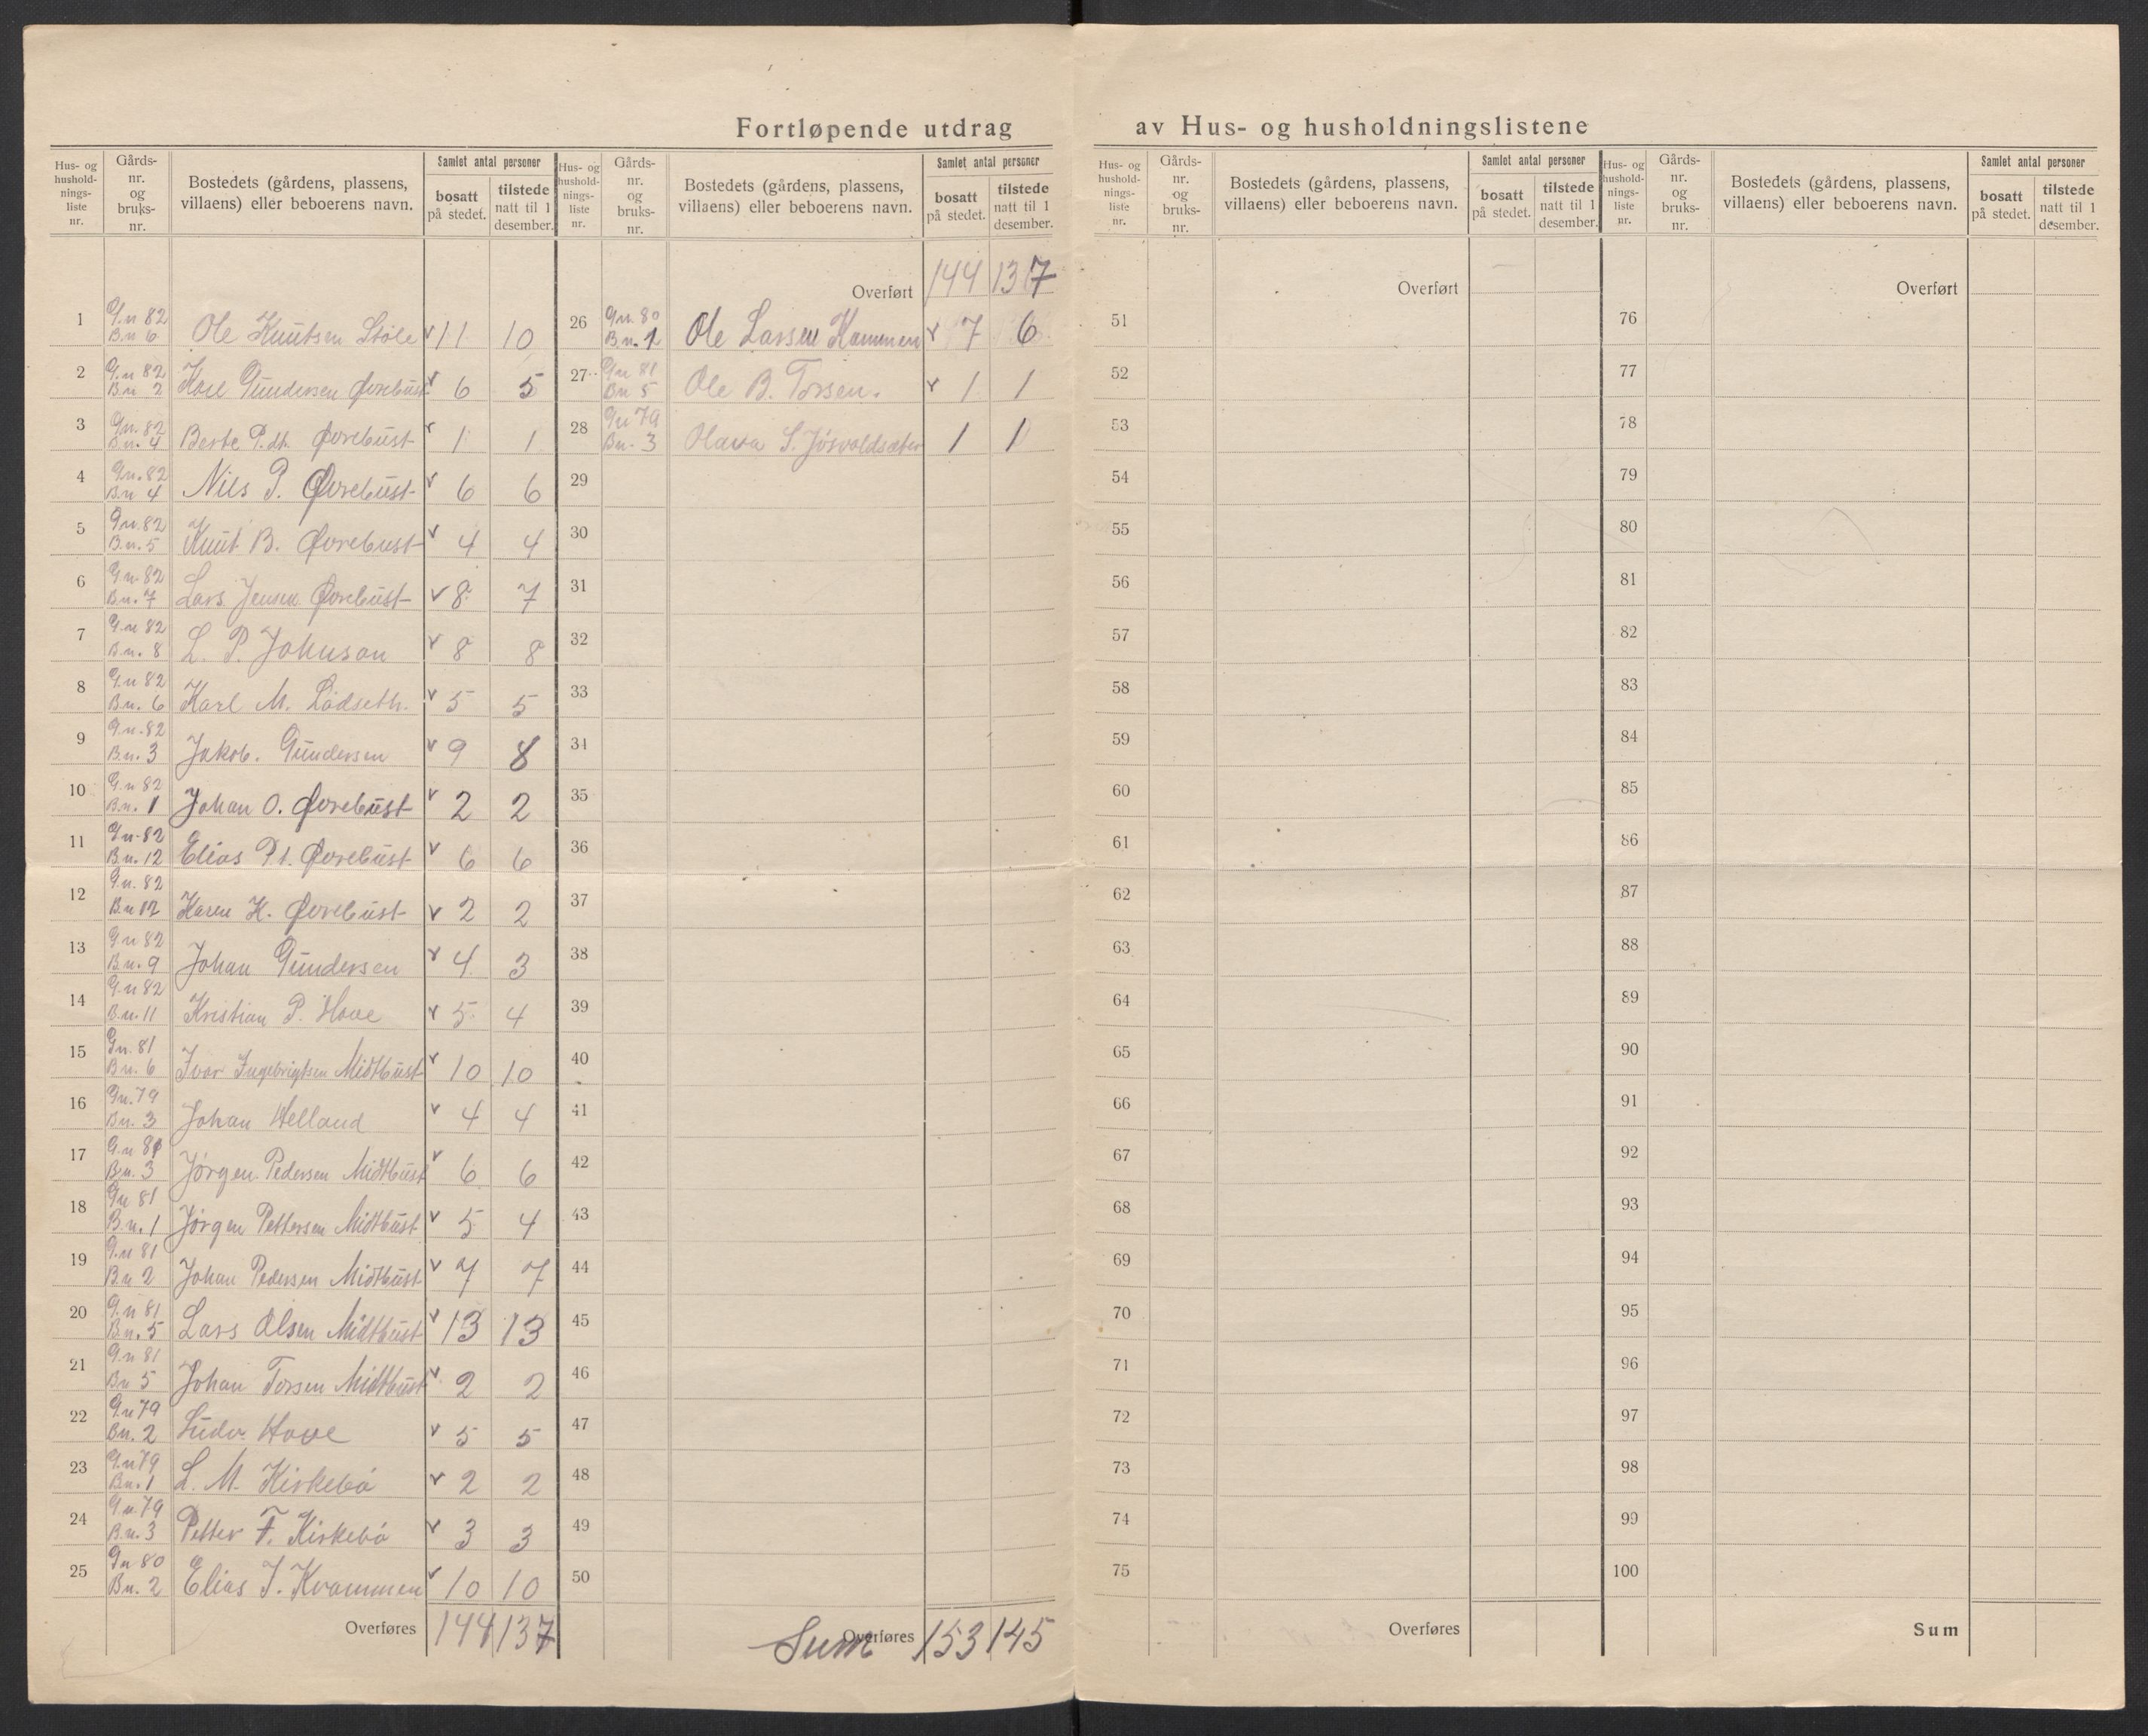 Fortløpende utdrag av Hus- og husholdningslistene
Hus- og husholdningsliste nr. | Gårds-nr. og bruks-nr. | Bostedets (gårdens, plassens, villaens) eller beboerens navn. | Samlet antal personer | bosatt på stedet. | tilstede natt til 1 desember.
Hus- og husholdningsliste nr. | Gårds-nr. og bruks-nr. | Bostedets (gårdens, plassens, villaens) eller beboerens navn. | Samlet antal personer | bosatt på stedet. | tilstede natt til 1 desember.
1 G.n 82 B.n 6 Ole Knutsen Støle v 11 10
2 G.n 82 B.n 2 Karl Gundersen Øvrebust v 6 5
3 Gn. 82 B.n. 4 Berte P.dt. Øvrebust v 1 1
4 Gn. 82 B.n 4 Nils P. Øvrebust v 6 6
5 Gn. 82 B.n. 5 Knut B. Øvrebust v 4 4
6 Gn. 82 B.n. 7 Lars Jensen Øvrebust v 8 7
7 G.n 82 B.n. 8 L. P. Johnson v 8 8
8 G.n 82 B.n. 6 Karl M. Lødseth. v 5 5
9 G.n. 82 B.n. 3 Jakob. Gundersen v 9 8
10 G.n 82 B.n. 1 Johan O. Øvrebust v 2 2
11 Gn. 82 B.n. 12 Elias Pt. Øvrebust v 6 6
12 G.n. 82 B.n 12 Karen K. Øvrebust v 2 2
13 G.n 82 B.n. 9 Johan Gundersen v 4 3
14 G.n 82 B.n. 11 Kristian P. Hove v 5 4
15 Gn. 81 B.n. 6 Ivar Ingebrigtsen Midtbust v 10 10
16 Gn. 79 B.n. 3 Johan Helland v 4 4
17 G.n 81 B.n. 3 Jørgen Pedersen Midtbust v 6 6
18 Gn 81 B.n. 1 Jørgen Pettersen Midtbust v 5 4
19 G.n 81 B.n 2 Johan Pedersen Midtbust v 7 7
20 G.n 81 B.n. 5 Lars Olsen Midtbust v 13 13
21 G.n 81 B.n 5 Johan Torsen Midtbust v 2 2
22 G.n 79 B.n. 2 Ludv. Hove v 5 5
23 G.n 79 B.n. 1 L. M. Kirkebø v 2 2
24 G.n. 79 B.n. 3 Petter F. Kirkebø v 3 3
25 Gn 80 B.n. 2 Elias J. Kvammen v 10 10
Overføres 144 137
Overført 144 137
26 Gn. 80 B.n. 1 Ole Larsen Kammen v 7 6
27 Gn 81 Bn 5 Ole B. Torsen. v 1 1
28 Gn 79 Bn. 3 Olava S. 1 1
29
30
31
32
33
34
35
36
37
38
39
40
41
42
43
44
45
46
47
48
49
50
Sum Overføres 153 145
Hus- og husholdningsliste nr. | Gårds-nr. og bruks-nr. | Bostedets (gårdens, plassens, villaens) eller beboerens navn. | Samlet antal personer | bosatt på stedet. | tilstede natt til 1 desember.
Overført
51
52
53
54
55
56
57
58
59
60
61
62
63
64
65
66
67
68
69
70
71
72
73
74
75
Overføres
Hus- og husholdningsliste nr. | Gårds-nr. og bruks-nr. | Bostedets (gårdens, plassens, villaens) eller beboerens navn. | Samlet antal personer | bosatt på stedet. | tilstede natt til 1 desember.
Overført
76
77
78
79
80
81
82
83
84
85
86
87
88
89
90
91
92
93
94
95
96
97
98
99
100
Sum